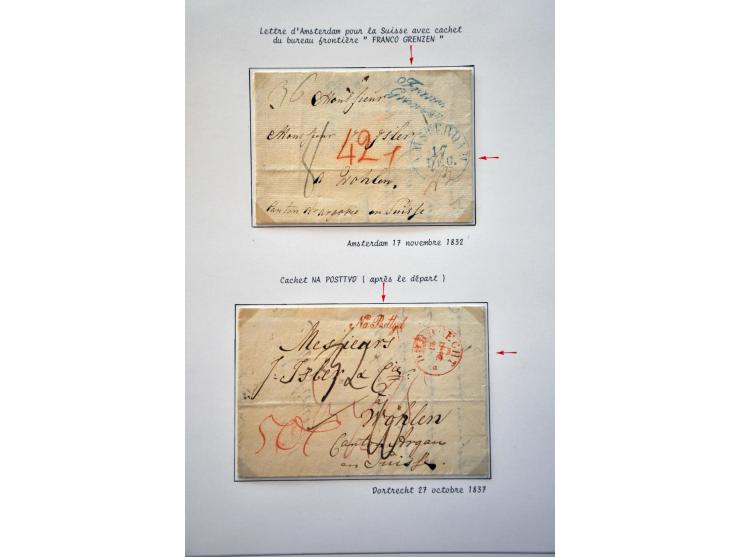 Lettre d'Amsterdam pour la Suisse avec cachet
du bureau frontière " FRANCO GRENZEN "
36 Monsieur
Franco
Grenzen
Monsieur Isler
AMSTERDAM
17
42
à Wohlen.
Canton d'argovie en Suisse
Amsterdam 17 novembre 1832
Cachet NA POSTTYD ( après le départ )
Na Posttyd
DORDRECHT
Messieurs
J. Isler & Cie
à
Wohlen
Canton Argau
en Suisse.
Dortrecht 27 octobre 1837